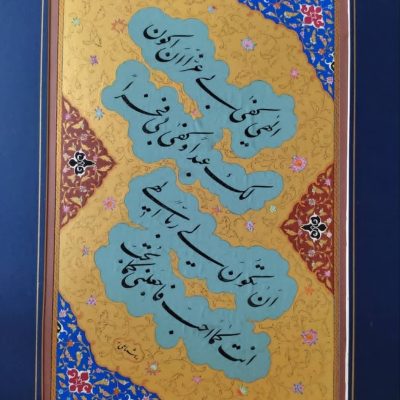 الهی کفی بی عزا ان اکون
لک عبدا و کفی بی فخرا
ان تکون لی ربا الهی
انت کما احب فاجعلنی کما تحب